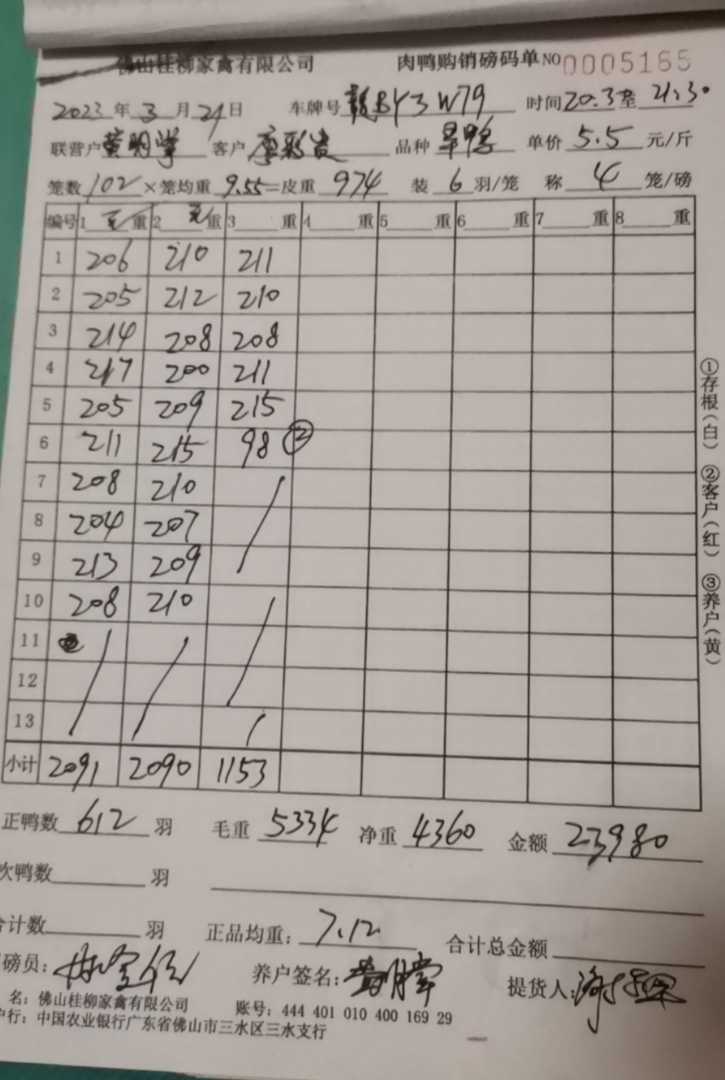 佛山桂柳家禽有限公司 肉鸭购销磅码单 NO 0005165
2023 年 3 月 21 日 车牌号 BY3W79 时间 20.3至 21:30
联营户 黄明学 客户 品种 旱鸭 单价 5.5 元/斤
笼数 102 ×笼均重 9.55 =皮重 974 装 6 羽/笼 称 4 笼/磅
编号 1 毛 重 2 毛 重 3 重 4 重 5 重 6 重 7 重 8 重
1 206 210 211
2 205 212 210
3 214 208 208
4 217 200 211
5 205 209 215
6 211 215 98 ②
7 208 210
8 204 207
9 213 209
10 208 210
11
12
13
小计 2091 2090 1153
正鸭数 612 羽 毛重 5334 净重 4360 金额 23980
次鸭数 羽
合计数 羽 正品均重: 7.12 合计总金额
磅员: 养户签名: 提货人:
名: 佛山桂柳家禽有限公司 账号: 444 401 010 400 169 29
户行: 中国农业银行广东省佛山市三水区三水支行
①存根(白) ②客户(红) ③养户(黄)